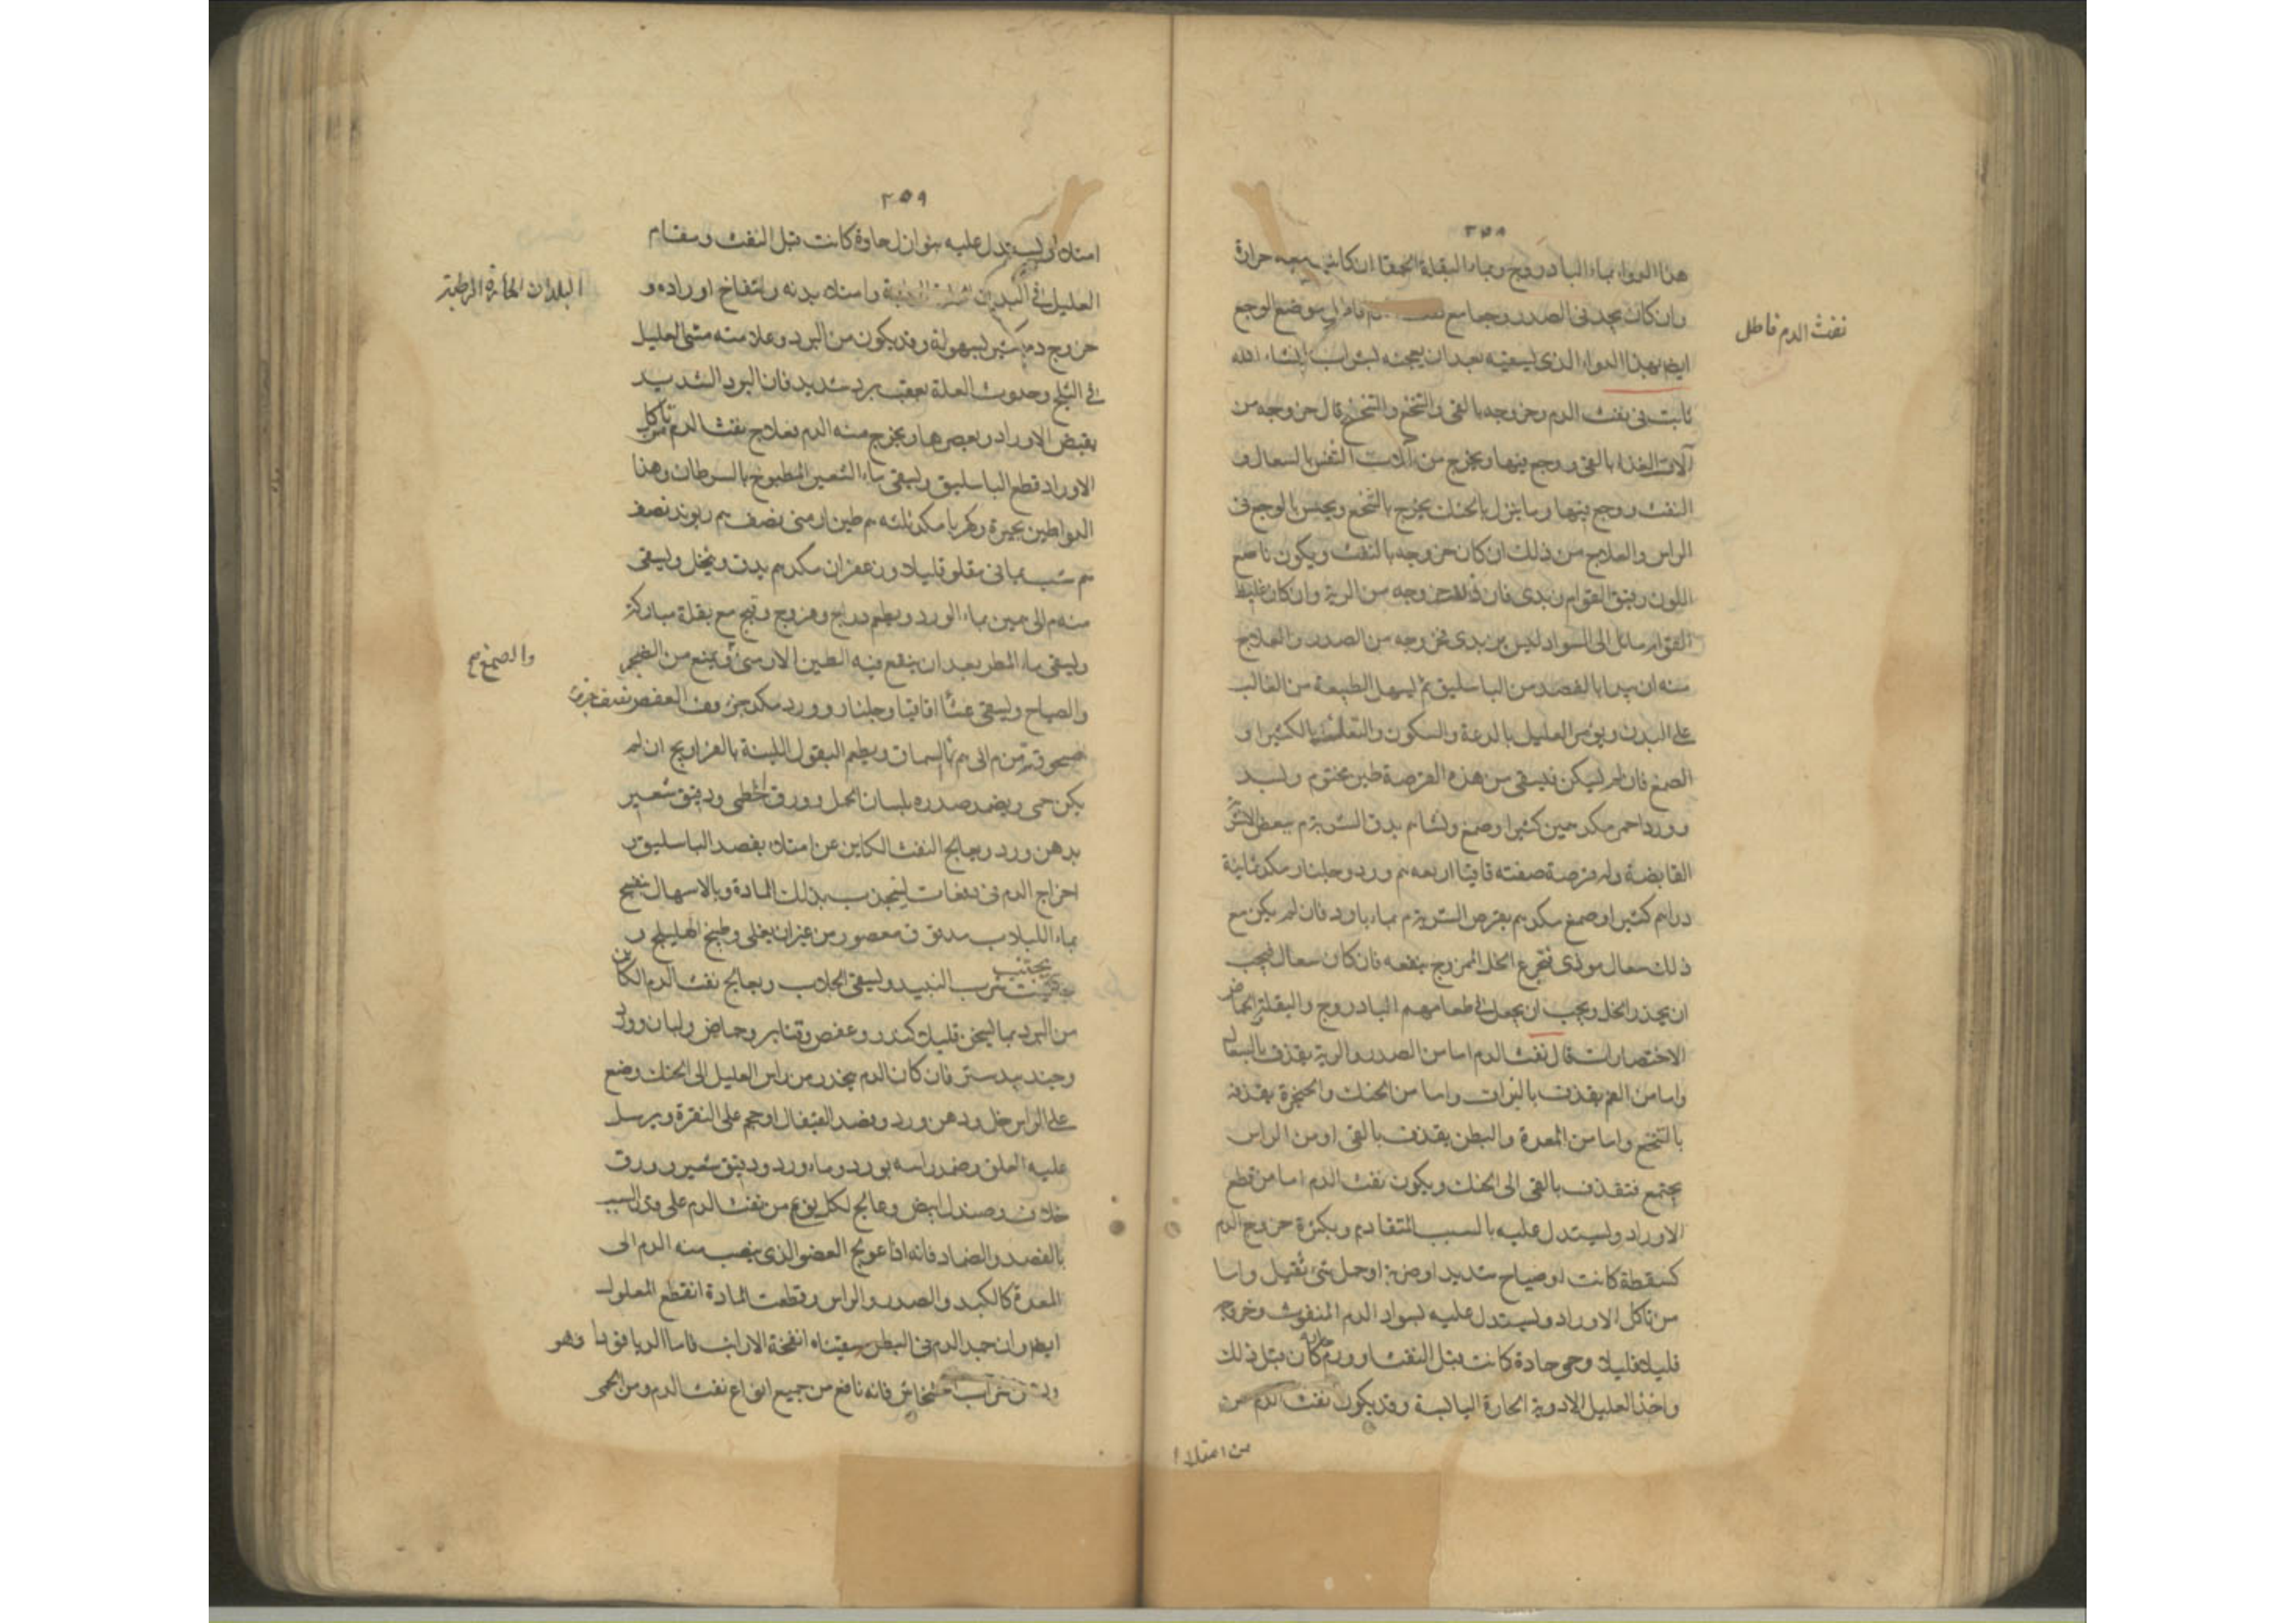 ٢٥٨
هذا الدواء بماء البادروج وبماء البقلة الحمقا ان كانت معه حرارة
وان كان يجد فى الصدر وجعا مع نفث الدم فاطل موضع الوجع
نفث الدم فاطل
ايضا بهذا الدواء الذى يسقيه بعد ان يعجنه بشراب انشاء الله
ثابت فى نفث الدم وخروجه بالقى والتنخع والتنحنح قال خروجه من
آلات الغذا بالقى ووجع فيها ويخرج من آلات التنفس بالسعال و
النفث ووجع فيها وما ينزل بالحنك يخرج بالتنخع ويحس بالوجع فى
الراس والعلاج من ذلك ان كان خروجه بالنفث ويكون ناصع
اللون رقيق القوام زبدى فان ذلك خروجه من الرية وان كان غليظ
القوام مائل الى السواد ليس بزبدى فخروجه من الصدر والعلاج
منه ان يبدا بالفصد من الباسليق ثم يسهل الطبيعة من الغالب
على البدن ويؤمر العليل بالدعة والسكون والتعلل بالكثيرا و
الصمغ فان لم يسكن فليسقى من هذه القرصة طين مختوم وبسد
وورد احمر مكد جزين كثيرا وصمغ ونشا م يدق الشربة م ببعض الاشربة
القابضة وله قرصة صفته قاقيا اربعه م ورد وجلنار مكد ثمانية
دراهم كثيرا وصمغ مكد م يقرص الشربة م بماء بارد فان لم يكن مع
ذلك سعال موذى فتجرع الخل الممزوج ينفعه فان كان سعال فيجب
ان يحذر الخل ويجب ان يجعل فى طعامهم البادروج والبقلة الحامض
الاختصارات قال نفث الدم اما من الصدر والرية يقذف بالسعال
واما من الفم يقذف بالبزاق واما من الحنك والحنجرة يقذفه
بالتنخع واما من المعدة والبطن يقذف بالقى او من الراس
يجتمع فتقذف بالقى الى الحنك ويكون نفث الدم اما من قطع
الاوراد ويستدل عليه بالسبب المتقادم وبكثرة خروج الدم
كسقطة كانت او صياح شديد او ضربة او حمل شئ ثقيل واما
من تاكل الاوراد ويستدل عليه بسواد الدم المنفوث وخروجه
قليلا قليلا وحمى حادة كانت قبل النفث او ورم كان قبل ذلك
واخذ العليل الادوية الحارة اليابسة وقد يكون نفث الدم من
من امتلاء
٢٥٩
امتلاء ويستدل عليه بنوازل حادة كانت قبل النفث ومقام
العليل فى البلدان وامتلاء بدنه وانتفاخ اوراده و
البلدان الحارة الرطبة
خروج دم كثير بسهولة وقد يكون من البرد وعلامته مشى العليل
فى الثلج وحدوث العلة بعقب برد شديد فان البرد الشديد
يقبض الاوراد ويعصرها ويخرج منه الدم فعلاج نفث الدم من تاكل
الاوراد قطع الباسليق ويسقى ماء الشعير المطبوخ بالسرطان وهذا
الدوا طين بحيرة وكهربا مكد ثلثه م طين ارمنى نصف م ربوند نصف
م شب يمانى مقلو قليلا وزعفران مكد م يدق وينخل ويسقى
منه م الى مين بماء الورد ويطعم دراج وفروج وقبج مع بقلة مباركة
ويسقى ماء المطر بعد ان ينقع فيه الطين الارمنى ويمنع من الضجر
والصمغ صح
والصياح ويسقى عشا اقاقيا وجلنار وورد مكد جز ومن العفص نصف جزء
ويطعم البقول اللينة بالفراريج ان لم
يكن حمى ويضمد صدره بلسان الحمل وورق الخطمى ودقيق شعير
بدهن ورد ويعالج النفث الكاين عن امتلاء بفصد الباسليق و
اخراج الدم فى دفعات لينجذب بذلك المادة وبالاسهال
بماء اللبلاب معصور من غير ان يغلى وطبيخ الهليلج و
يجتنب شرب النبيد ويسقى الجلاب ويعالج نفث الدم الكاين
من البرد بما يسخن قليلا كندر وعفص وحماض ولبان
وجندبيدستر فان كان الدم ينحدر من راس العليل الى الحنك وضع
على الراس خل ودهن ورد وفصد القيفال او حجم على النقرة ويرسل
عليه العلق وضمد راسه بورد وماء ورد ودقيق شعير وورق
خلاف وصندل ابيض وعالج لكل نوع من نفث الدم على السبب
بالفصد والضماد فانه اذا عولج العضو الذى ينصب منه الدم الى
المعدة كالكبد والصدر والراس وقطعت المادة انقطع المعلول
ايضا وان جمد الدم فى البطن سقيناه انفحة الارانب فاما الديا قوذا وهو
شراب خشخاش فانه نافع من جميع انواع نفث الدم ومن الحمى